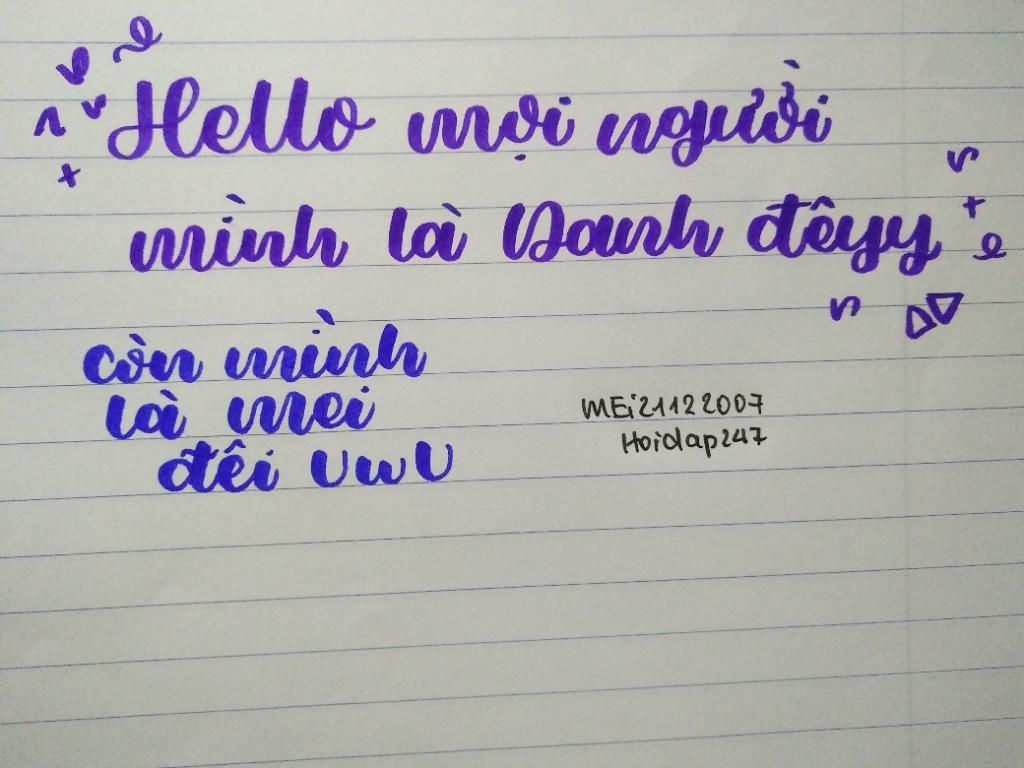 Hello mọi người
mình là Danh đêyy
còn mình
là mei
đêi UwU
MEi21122007
Hoidap247